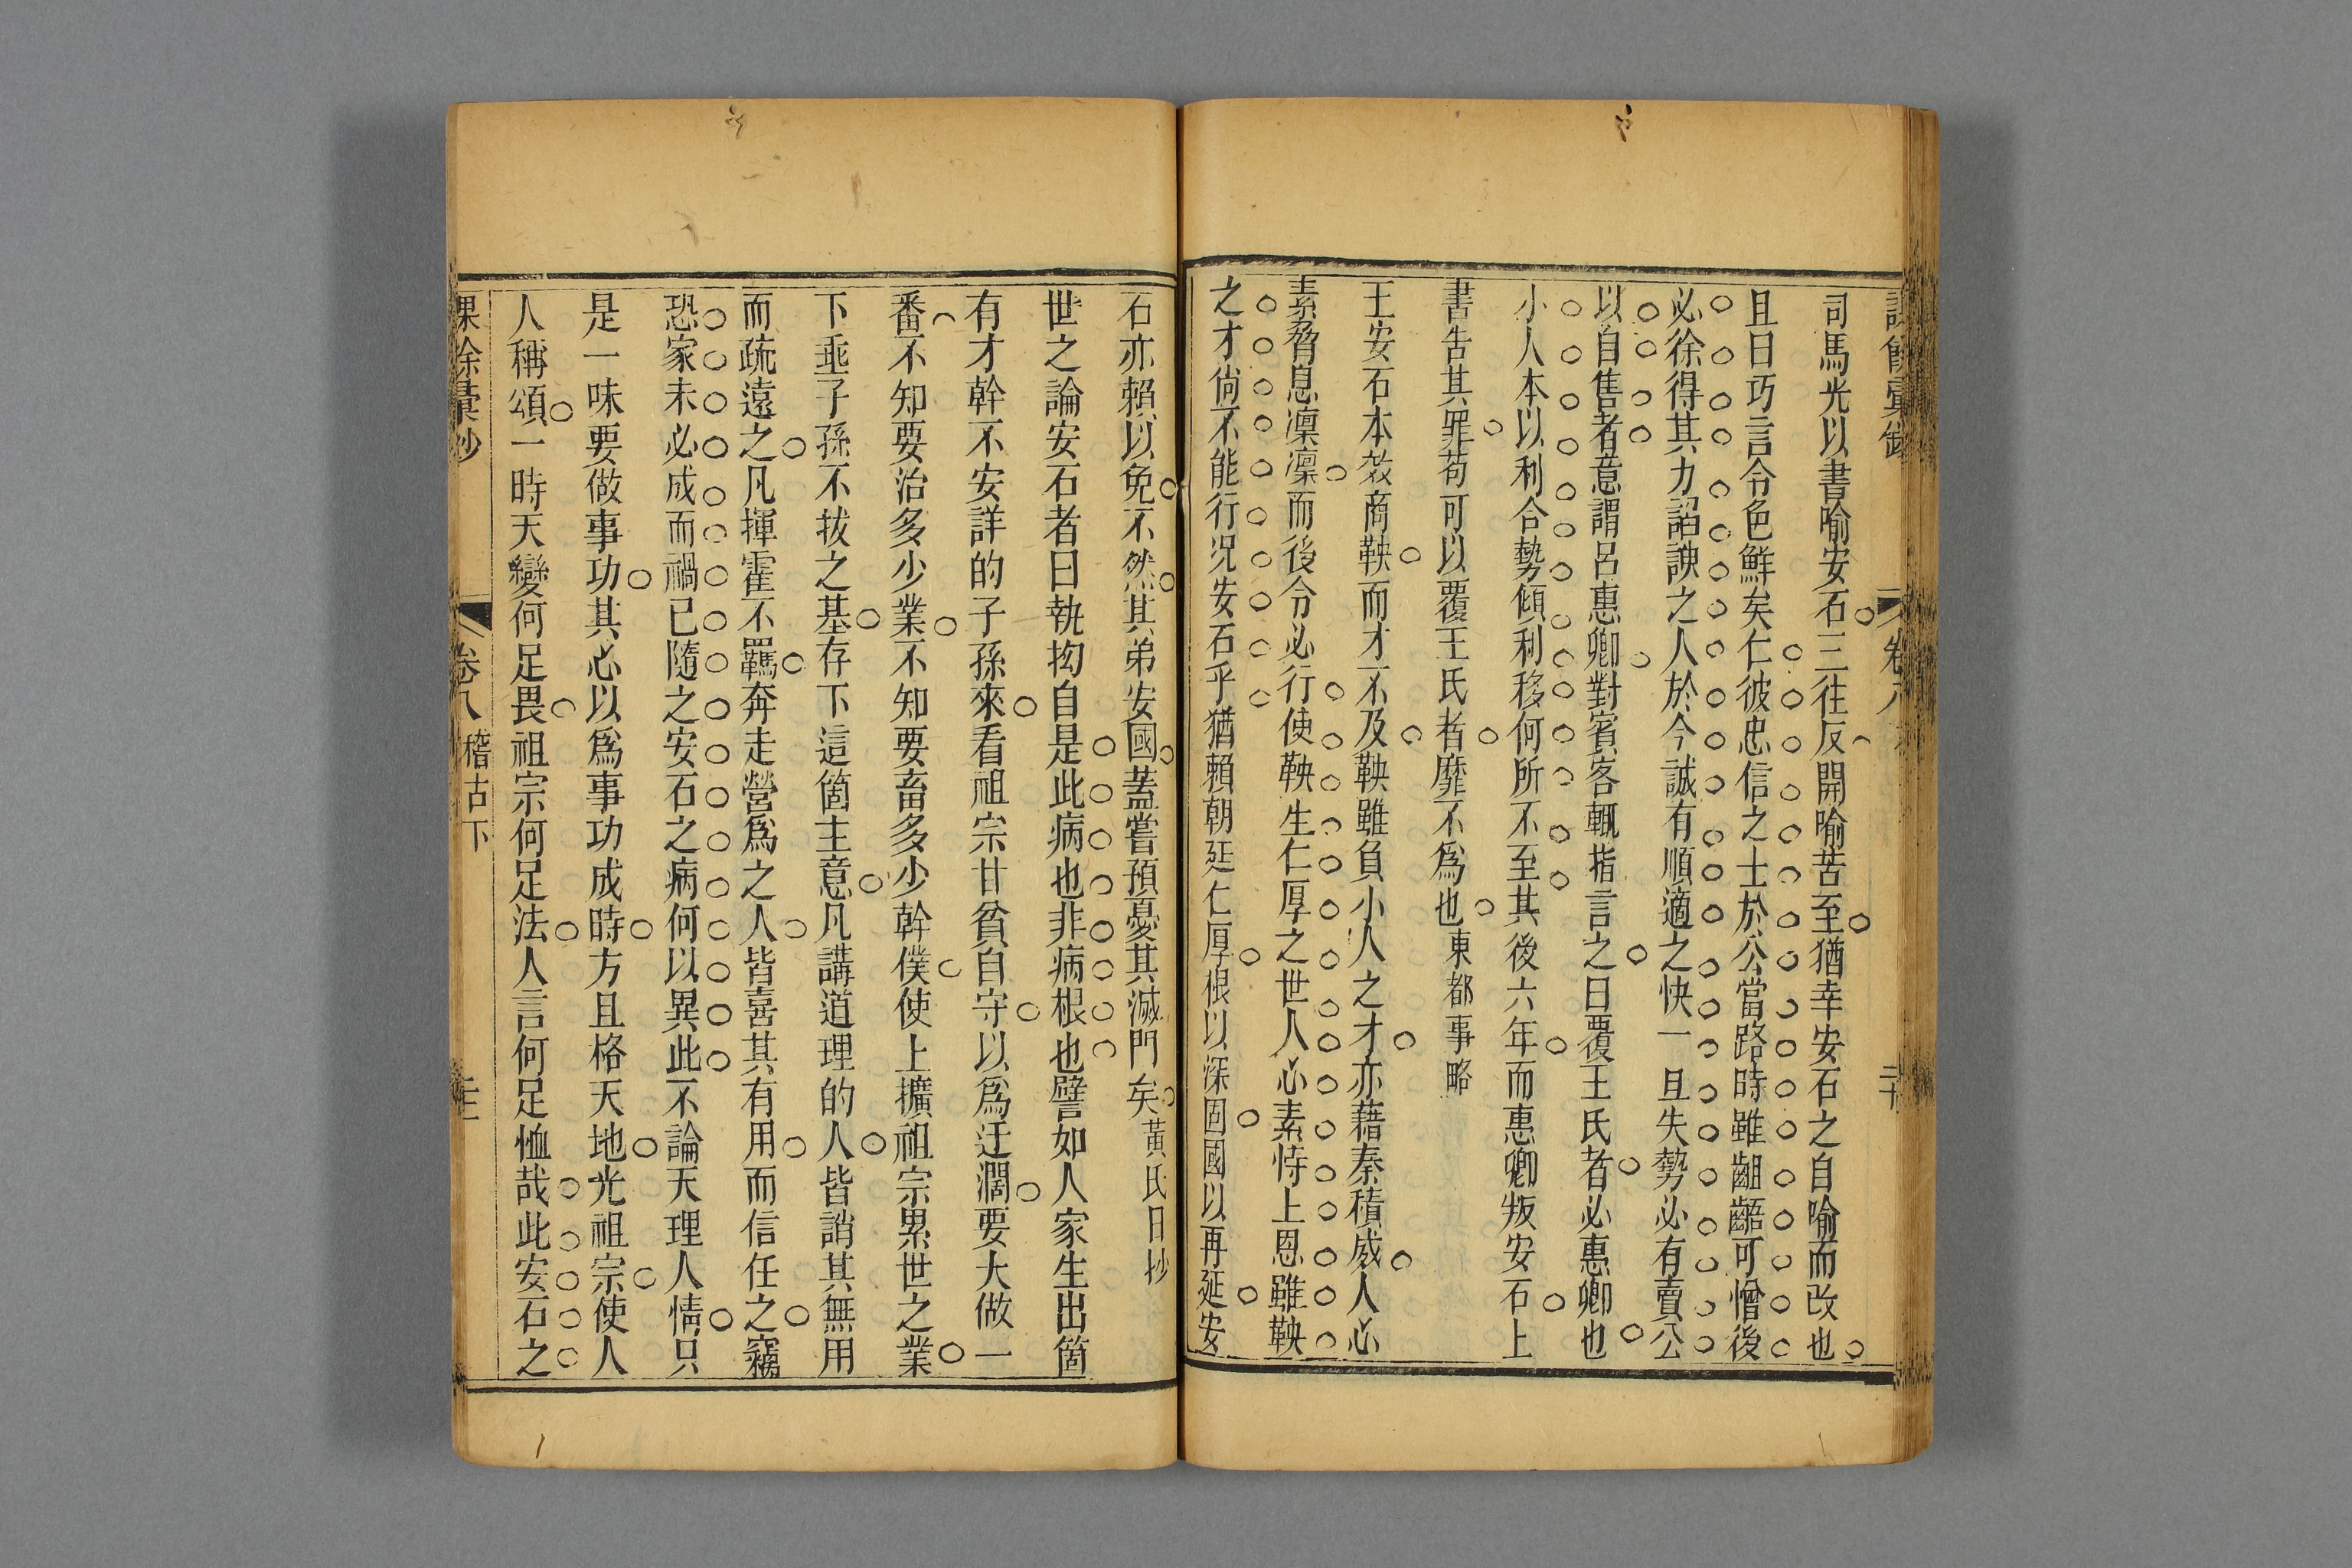 司馬光以書喻安石三往反開喻苦至猶幸安石之自喻而改也
且曰巧言令色鮮矣仁彼忠信之士於公當路時雖齟齬可憎後
必徐得其力諂諛之人於今誠有順適之快一旦失勢必有賣公
以自售者意謂呂惠卿對賓客輒指言之曰覆王氏者必惠卿也
小人本以利合勢傾利移何所不至其後六年而惠卿叛安石上
書告其罪苟可以覆王氏者靡不爲也東都事略
王安石本效商鞅而才不及鞅雖負小人之才亦藉秦積威人心
素脅息凜凜而後令必行使鞅生仁厚之世人心素恃上恩雖鞅
之才尙不能行況安石乎猶賴朝廷仁厚根以深固國以再延安
石亦賴以免不然其弟安國蓋嘗預憂其滅門矣黃氏日抄
世之論安石者曰執拗自是此病也非病根也譬如人家生出箇
有才幹不安詳的子孫來看祖宗甘貧自守以爲迂濶要大做一
番不知要治多少業不知要畜多少幹僕使上擴祖宗累世之業
下埀子孫不拔之基存下這箇主意凡講道理的人皆誚其無用
而疏遠之凡揮霍不羈奔走營爲之人皆喜其有用而信任之竊
恐家未必成而禍已隨之安石之病何以異此不論天理人情只
是一味要做事功其心以爲事功成時方且格天地光祖宗使人
人稱頌一時天變何足畏祖宗何足法人言何足恤哉此安石之
課餘彙抄 卷八 稽古下